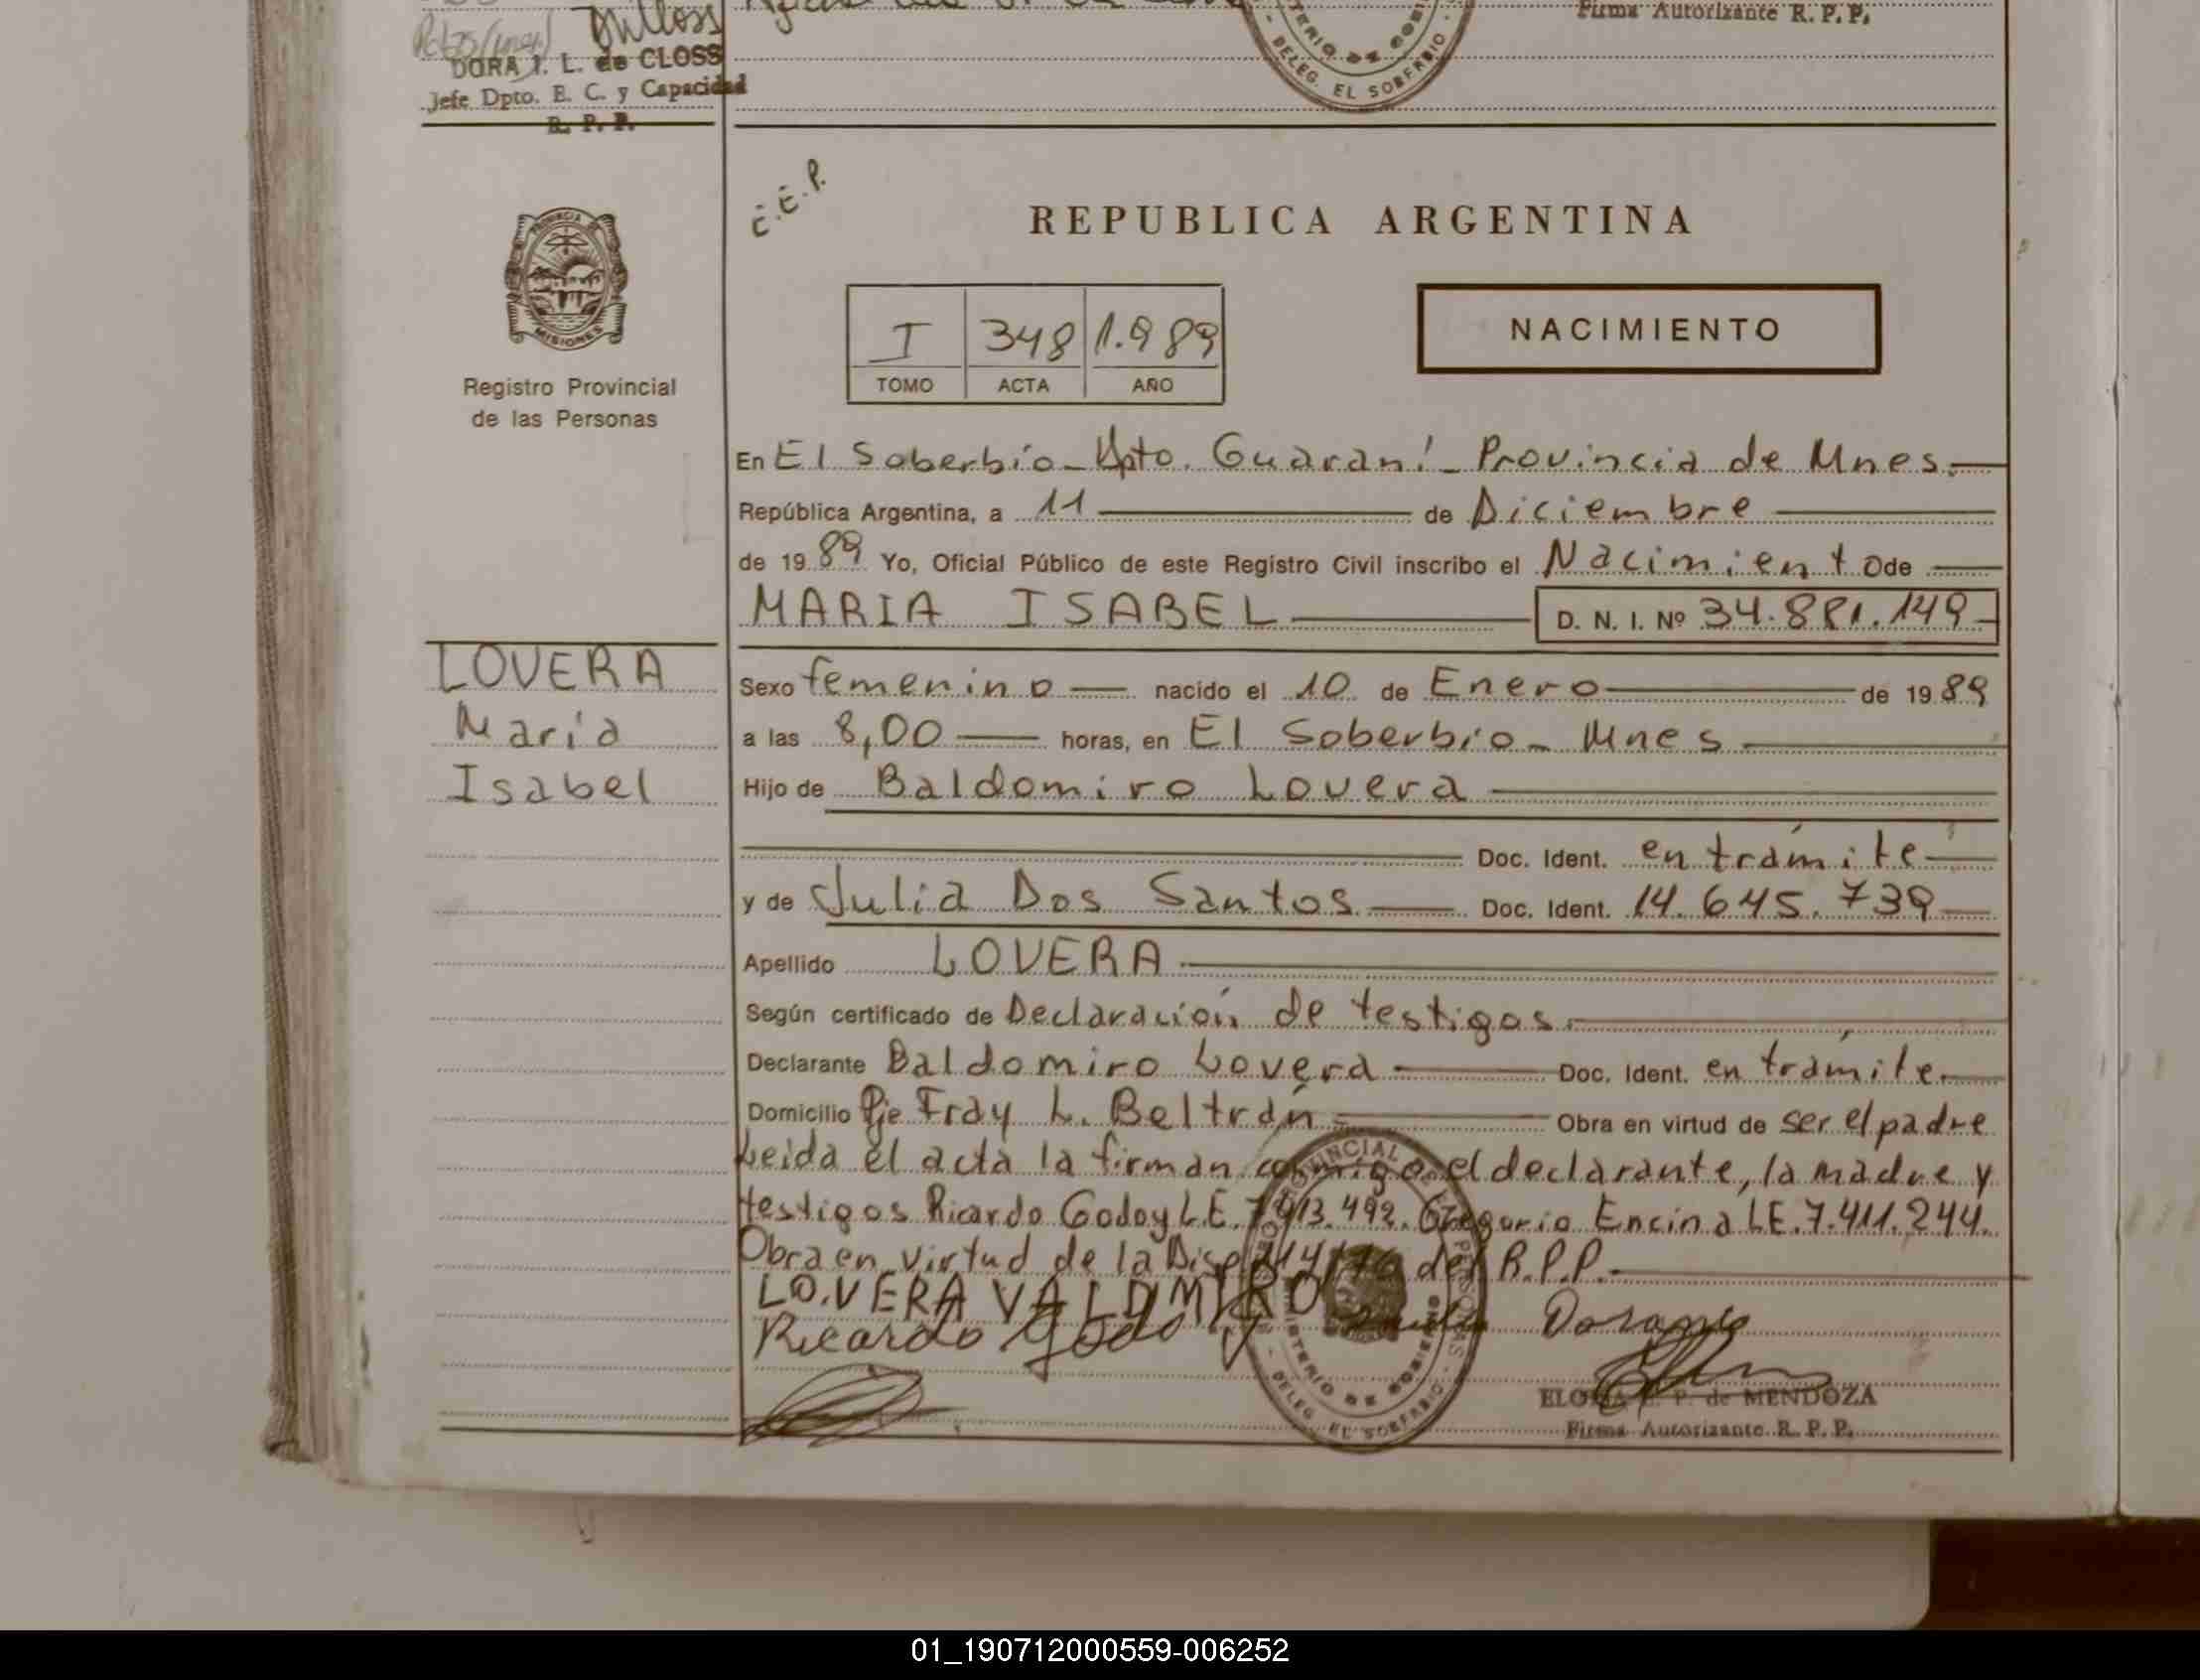 DORA I. L. de CLOSS
Jefe Dpto. E. C. y Capacidad
R. P. P.
DELEG. EL SOBERBIO
Firma Autorizante R. P. P.
C.E.P.
PROVINCIA
MISIONES
Registro Provincial
de las Personas
REPUBLICA ARGENTINA
I 348 1.989
TOMO ACTA AÑO
NACIMIENTO
En El Soberbio - Dpto. Guaraní - Provincia de Mnes.
República Argentina, a 11 de Diciembre
de 1989 Yo, Oficial Público de este Registro Civil inscribo el Nacimiento de
MARIA ISABEL D. N. I. Nº 34.881.149
LOVERA
María
Isabel
Sexo femenino nacido el 10 de Enero de 1989
a las 8,00 horas, en El Soberbio - Mnes
Hijo de Baldomiro Lovera
Doc. Ident. en trámite
y de Julia Dos Santos Doc. Ident. 14.645.739
Apellido LOVERA
Según certificado de Declaración de testigos.
Declarante Baldomiro Lovera Doc. Ident. en trámite.
Domicilio Pje Fray L. Beltrán Obra en virtud de ser el padre
Leida el acta la firman conmigo el declarante, la madre y
testigos Ricardo Godoy L.E. 7.913.492. Gregorio Encina L.E. 7.411.244.
Obra en virtud de la Disp. del R.P.P.
LOVERA VALDMIRO
Ricardo Godoy
ELOISA P. de MENDOZA
Firma Autorizante R. P. P.
DELEG. EL SOBERBIO
01_190712000559-006252